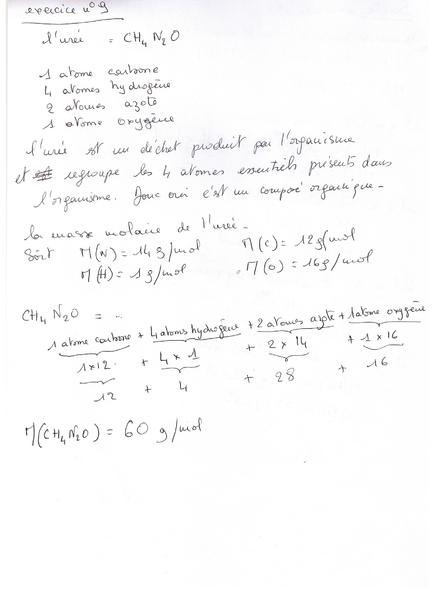 exercice n°9
l'urée = CH4N2O
1 atome carbone
4 atomes hydrogène
2 atomes azote
1 atome oxygène
l'urée est un déchet produit par l'organisme
et regroupe les 4 atomes essentiels présents dans
l'organisme. Donc oui c'est un composé organique.
la masse molaire de l'urée.
Soit M(N) = 14 g/mol M(C) = 12g/mol
M(H) = 1 g/mol . M(O) = 16g/mol
CH4N2O = ...
1 atome carbone + 4 atoms hydrogène + 2 atomes azote + 1 atome oxygène
1x12. + 4 x 1 + 2 x 14 + 1 x 16
12 + 4 + 28 + 16
M(CH4N2O) = 60 g/mol